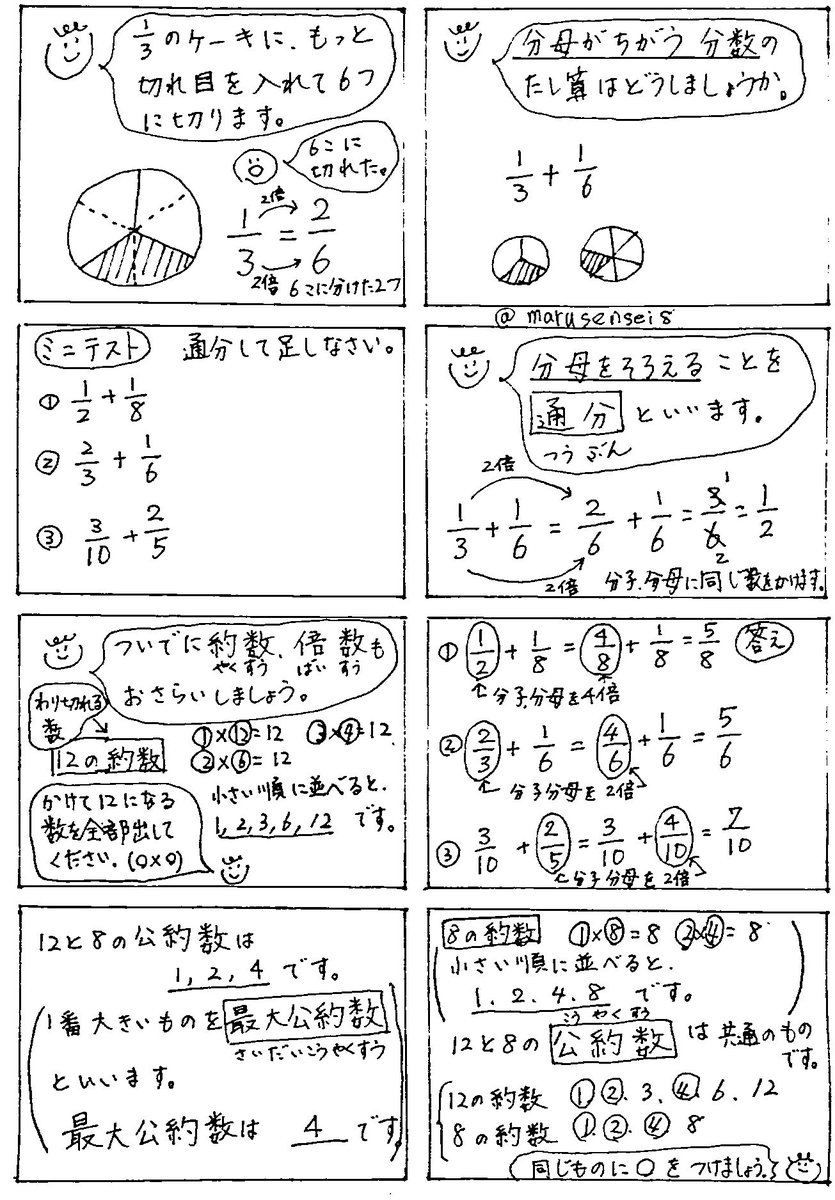 分母がちがう分数の
たし算はどうしましょうか。
1/3 + 1/6
@marusensei8
1/3のケーキに、もっと
切れ目を入れて6つ
に切ります。
6こに
切れた。
2倍
1/3 = 2/6
2倍 6こに分けた2つ
分母をそろえることを
通分といいます。
つうぶん
2倍
1/3 + 1/6 = 2/6 + 1/6 = 3/6 = 1/2
1
2
2倍 分子、分母に同じ数をかけます。
ミニテスト 通分して足しなさい。
① 1/2 + 1/8
② 2/3 + 1/6
③ 3/10 + 2/5
① 1/2 + 1/8 = 4/8 + 1/8 = 5/8 答え
分子、分母を4倍
② 2/3 + 1/6 = 4/6 + 1/6 = 5/6
分子分母を2倍
③ 3/10 + 2/5 = 3/10 + 4/10 = 7/10
分子、分母を2倍
ついでに約数、倍数も
やくすう ばいすう
おさらいしましょう。
わり切れる
数
12の約数
①×⑫=12 ③×④=12
②×⑥=12
かけて12になる
数を全部出して
ください。(○×○)
小さい順に並べると、
1,2,3,6,12 です。
8の約数 ①×⑧=8 ②×④=8
小さい順に並べると、
1.2.4.8 です。
こうやくすう
12と8の公約数は共通のもの
です。
12の約数 ①②.3.④.6.12
8の約数 ①.②.④ 8
同じものに○をつけましょう。
12と8の公約数は
1,2,4 です。
1番大きいものを最大公約数
さいだいこうやくすう
といいます。
最大公約数は 4 です。